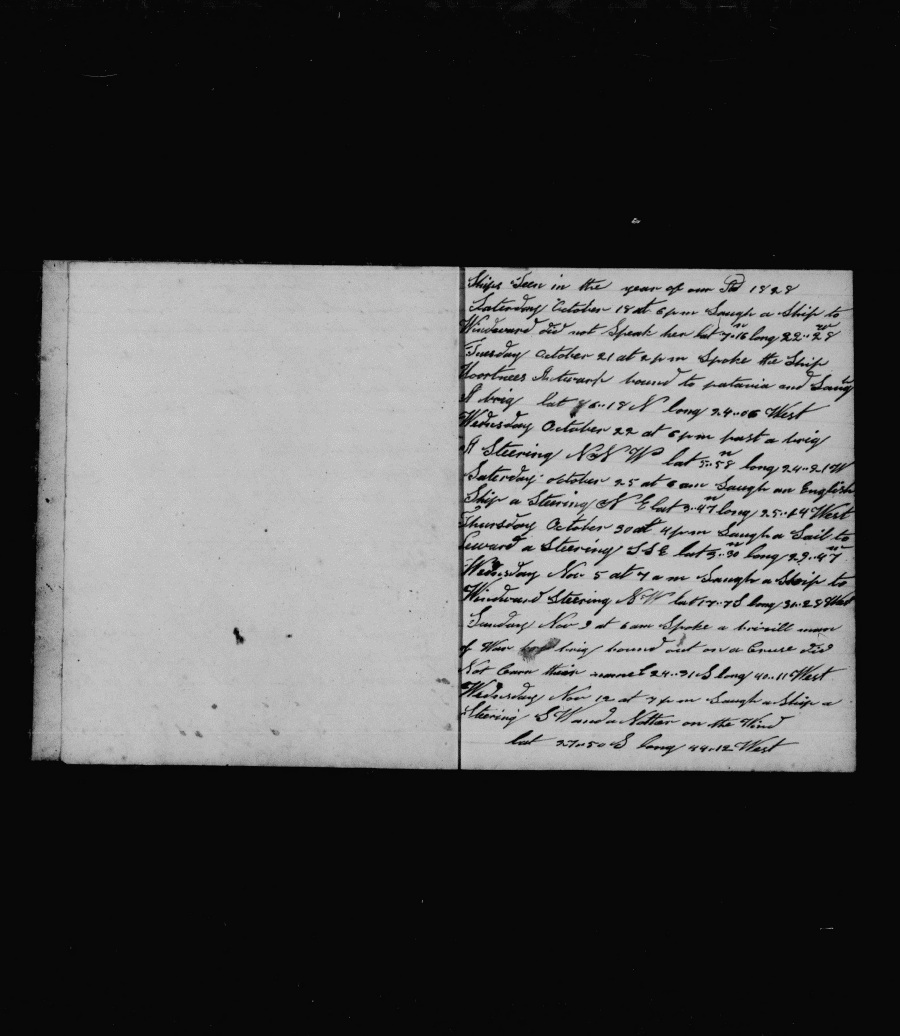 Ships Seen in the year of our 1828
Saterday October 18 at 6 pm Saugh a Ship to
Windward did not Speak her lat 7..16 n long 22..28 W
Tuesday October 21 at 2 pm Spoke the Ship
Antwarp bound to patavia and Saugh
A brig lat 6..18 N long 24..06 West
Wednsday October 22 at 6 pm past a brig
A Steering N N W lat 5..58 n long 24..21 W
Saterday october 25 at 6 am Saugh an English
Ship a Steering N E lat 3..47 n long 25..14 West
Thursday October 30 at 4 pm Saugh a Sail to
Leward a Steering S S E lat 3..30 long 29..47 W
Wednsday Nov 5 at 7 a m Saugh a Ship to
Windward Steering N W lat 17..7 S long 31..28 West
Sunday Nov 9 at 6 am Spoke a brisill man
of War brig bound out on a Cruse did
Not Earn their name L 24..31 S long 40..11 West
Wednsday Nov 12 at 7 pm Saugh a Ship a
Steering S W and a Nother on the Wind
lat 27..50 S long 44..12 West